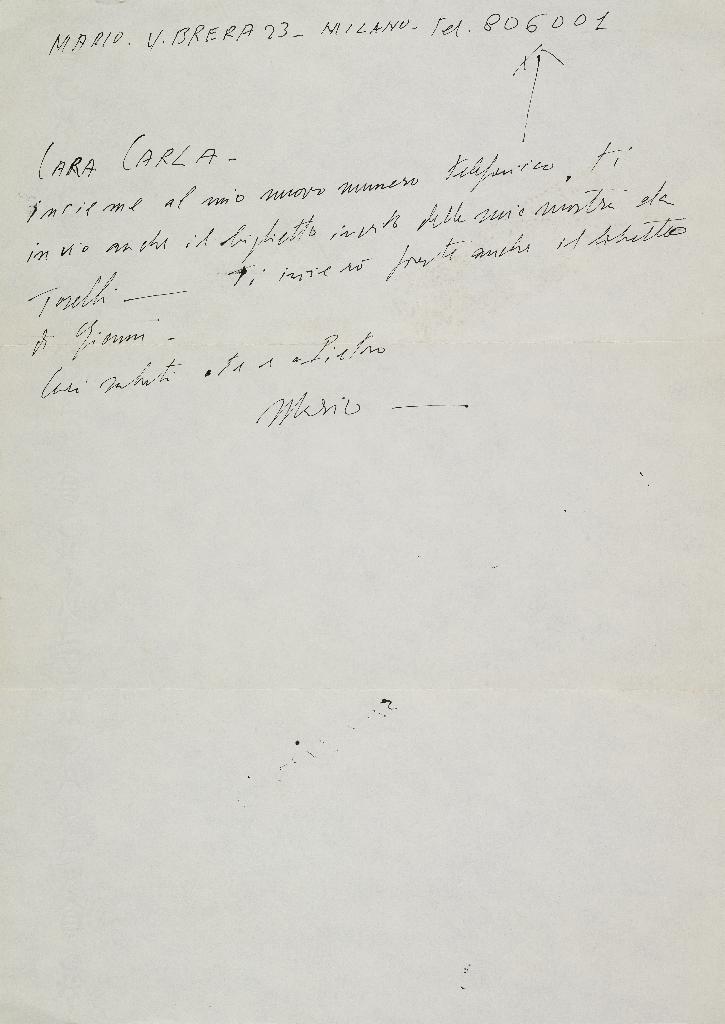 MARIO. V. BRERA 23 - MILANO - Tel. 806001
CARA CARLA -
insieme al mio nuovo numero telefonico, ti
invio anche il biglietto invito della mia mostra da
Toselli — Ti invierò presto anche il libretto
di Gianni -
Cari saluti a te e a Pietro
Mario —